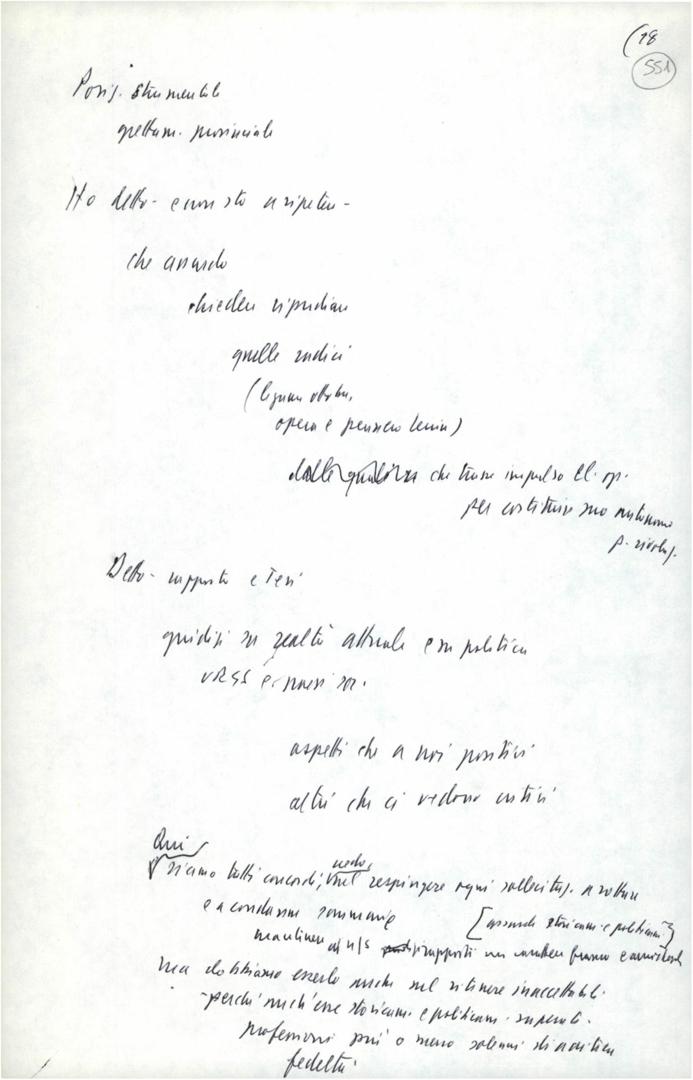 (18
551
Posiz. strumentale
grettam. provinciale
Ho detto - e non sto a ripetere -
che assurdo
chiedere ripudiare
quelle radici
(
opera e pensiero Lenin)
che trasse impulso cl. op.
per costituire suo autonomo
p. rivoluz.
Detto - rapporto e Tesi
giudizi su realtà attuale e su politica
URSS e paesi soc.
aspetti che a noi positivi
altri che ci vedono critici
Qui
siamo tutti concordi, credo, nel respingere ogni sollecitaz. a rotture
e a condanne sommarie
[assurde storicam. e politicam.]
mantenere ai n/s rapporti un carattere franco e
ma dobbiamo esserlo anche nel ritenere inaccettabili -
- perché anch'esse storicam. e politicam. superate -
professioni più o meno solenni di acritica
fedeltà